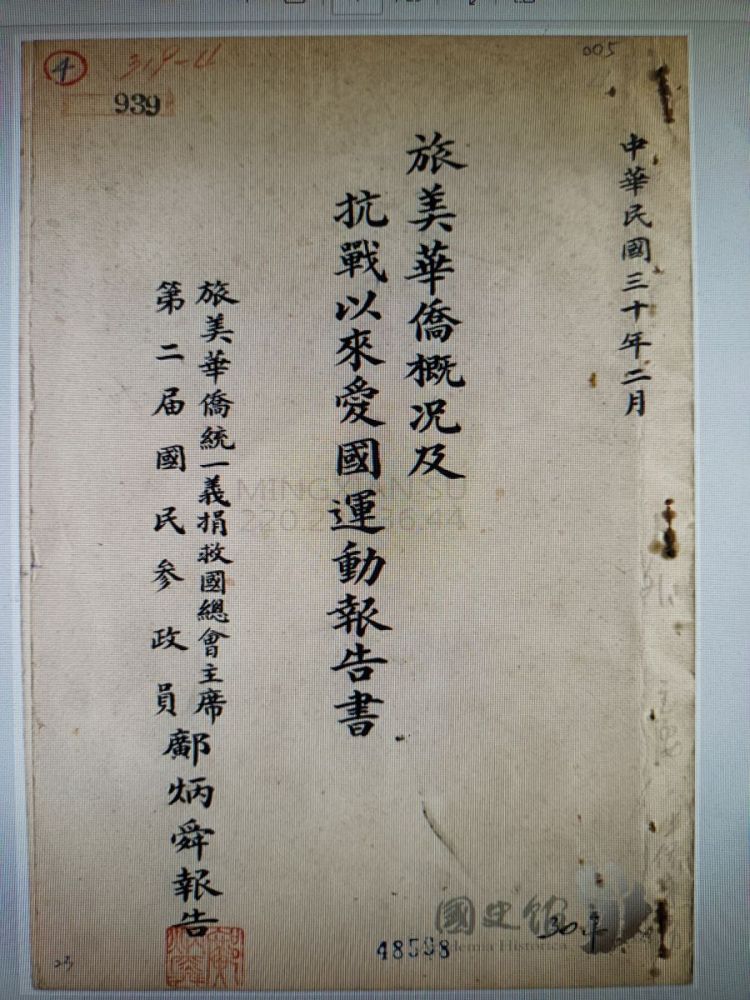 005
4
319-4
939
中華民國三十年二月
旅美華僑概況及
抗戰以來愛國運動報告書
旅美華僑統一義捐救國總會主席
第二届國民參政員
鄺炳舜報告
國史館
Academia Historica
30年
48598
23